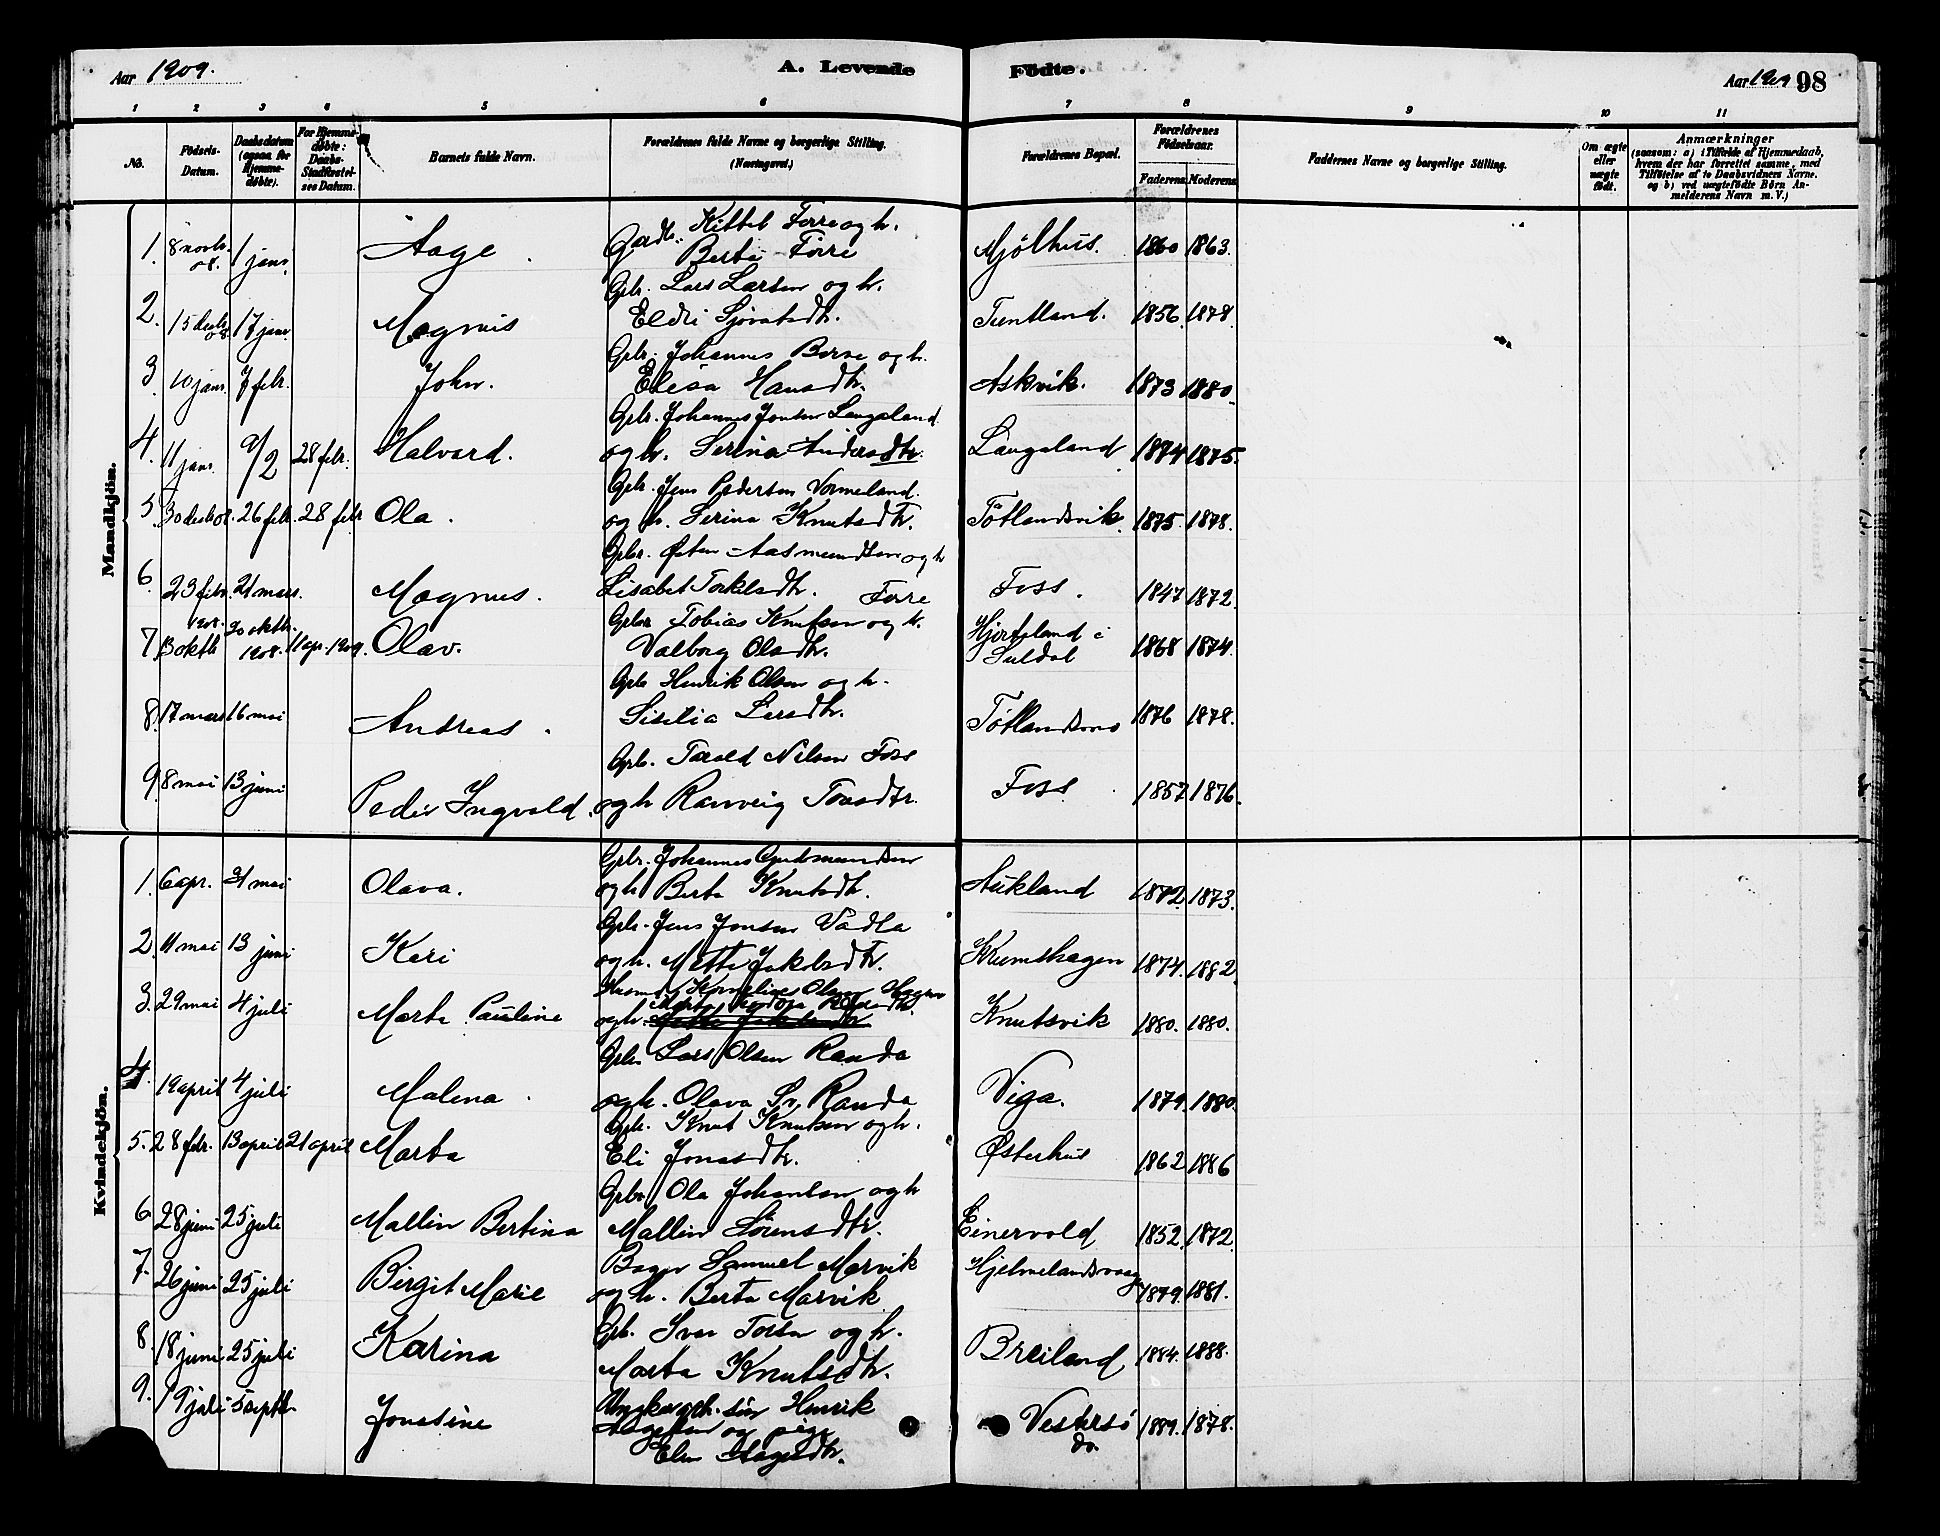 Aar 1909.
A. Levende
Födte.
Aar 1909 98
1 2 3 4 5 6 7 8 9 10 11
No.
Födsels-
Datum.
Daabsdatum
(ogsaa for
Hjemme-
döbte).
For Hjemme-
döbte:
Daabs-
Stadfæstel-
ses Datum.
Barnets fulde Navn.
Forældrenes fulde Navne og borgerlige Stilling.
(Næringsvei.)
Forældrenes Bopæl.
Forældrenes
Födselsaar.
Faderens. Moderens.
Faddernes Navne og borgerlige Stilling.
Om ægte
eller
uægte
födt.
Anmærkninger
(saasom: a) i Tilfælde af Hjemmedaab,
hvem der har forrettet samme, med
Tilföielse af to Daabsvidners Navne,
og b) ved uægtefödte Börn An-
melderens Navn m. V.)
Mandkjön.
Kittel Førre og h.
1. 8 novb. 08. 1 janr. Aage. Berta Førre Mjølhus. 1860 1863.
Gbr. Lars Larsen og h.
2. 15 desbr 08. 17 janr. Magnus Eldri Sjurdsdtr. Tuntland. 1856. 1878.
Gbr. Johannes Børse og h.
3. 10 janr. 7 febr. John. Elisa Hansdtr. Askvik. 1873 1880.
Gbr. Johannes Jonsen Laugaland
4. 11 janr. 9/2 28 febr. Halvard. og h. Serina Andersdtr. Laugaland 1874 1875.
Gbr. Jens Pedersen Vormeland.
5. 30 desb 08. 26 febr. 28 febr Ola. og h. Serina Knutsdtr. Tøtlandsvik. 1875. 1878.
Gbr. Østen Aasmundsen og h
6. 23 febr. 21 mars. Magnus. Lisabet Torkelsdtr. Førre Foss. 1847 1872.
Gbr Tobias Knutsen og h.
7. 13 oktb 1908. 20 oktbr. 1908. 11 apr. 1909. Olav. Valborg Olsdtr. Hjorteland i Suldal 1868 1874.
Gbr Henrik Olsen og h.
8. 17 mars 16 mai Andreas. Sisilia Larsdtr. Tøtlandsmo 1876 1878.
Gbr. Tarald Nilsen Foss
9. 8 mai 13 juni Peder Ingvald. og h Ranveig Toresdtr. Foss. 1857 1876.
Kvindekjön.
Gbr. Johannes Gudmundsen
1. 6 apr. 31 mai Olava. og h Berta Knutsdtr. Aukland 1872. 1873.
Gbr. Jens Jonsen Vadla
2. 11 mai 13 juni Kari og h. Mette Jakobsdtr. Krumshagen 1874. 1882.
Kornelius Olsen
3. 29 mai 4 juli Marta Pauline og h. Knutsvik 1880. 1880.
Gbr. Lars Olsen Randa
4. 19 april 4 juli Malena. og h. Olava Randa Viga. 1879. 1880.
Gbr. Knut Knutsen og h.
5. 28 febr. 13 april 21 april Marta Eli Jonasdtr. Østerhus 1862 1886
Gbr Ola Johansen og h
6. 28 juni 25 juli Mallin Bertina Mallin Sørensdtr. Einervold 1852. 1872.
Bager Samuel Marvik
7. 26 juni 25 juli Birgit Marie og h. Berta Marvik Hjelmelandsvaag 1879. 1881.
Gbr. Iver Torsen og h.
8. 18 juni 25 juli Karina Marta Knutsdtr. Breiland 1884. 1888.
Ungkar gbr. søn Henrik
9. 19 juli 5 septbr. Jonasine og pige Vestersø 1889. 1878.
Aagesdtr. do.